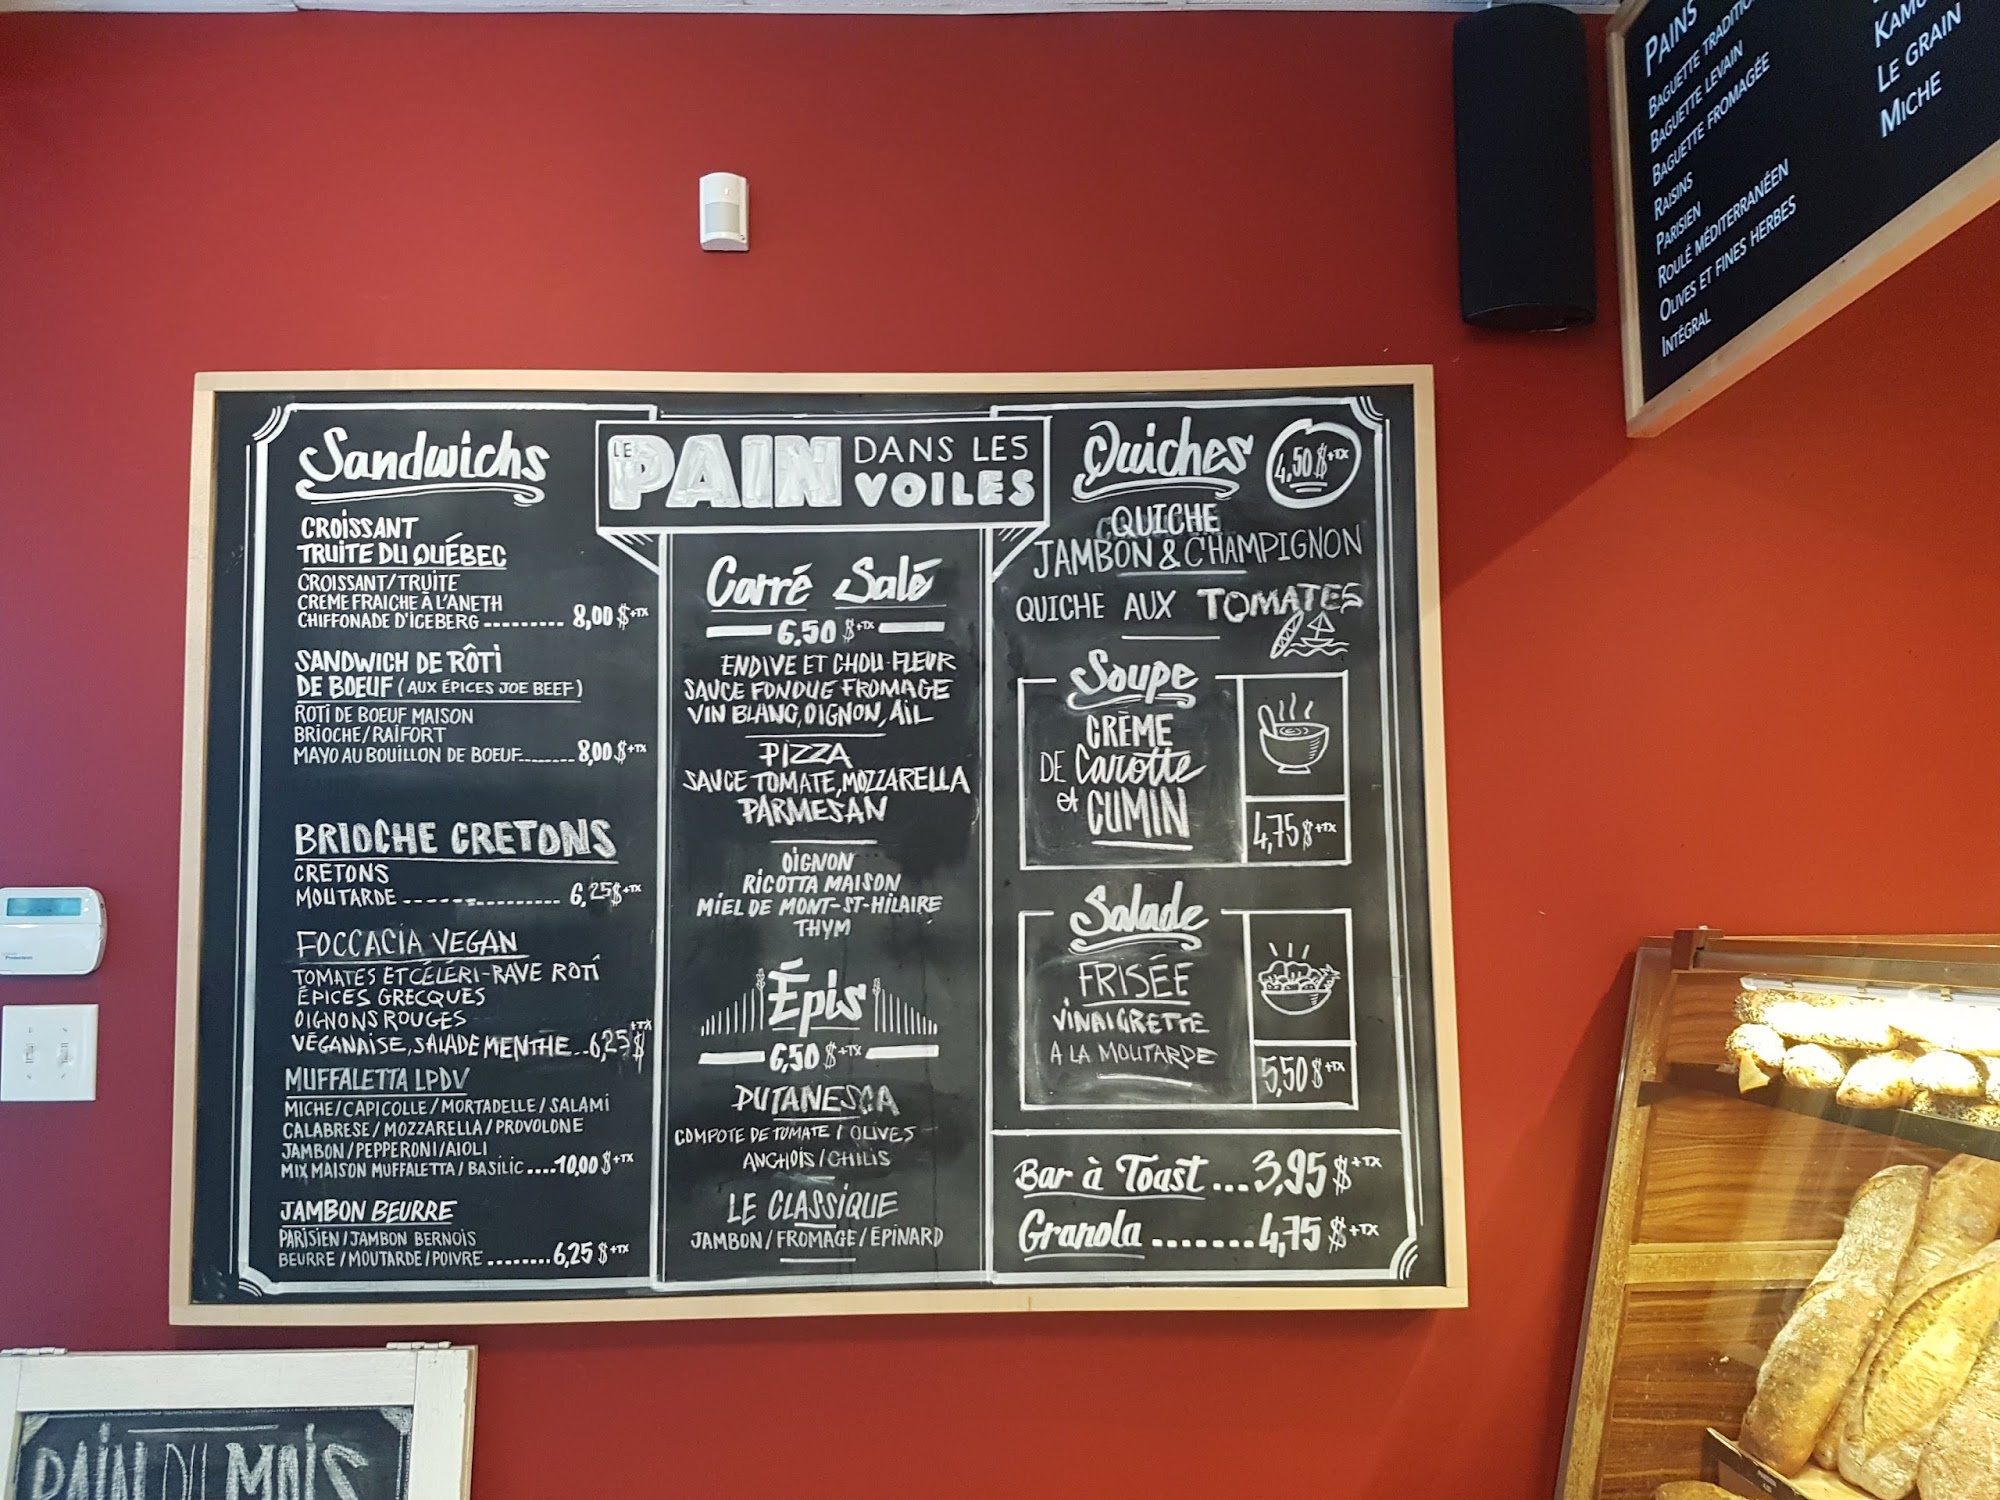 Sandwichs
CROISSANT
TRUITE DU QUÉBEC
CROISSANT/TRUITE
CREME FRAICHE À L'ANETH
CHIFFONADE D'ICEBERG ......... 8,00 $+TX
SANDWICH DE RÔTI
DE BOEUF (AUX ÉPICES JOE BEEF)
ROTI DE BOEUF MAISON
BRIOCHE/RAIFORT
MAYO AU BOUILLON DE BOEUF........ 8,00 $+TX
BRIOCHE CRETONS
CRETONS
MOUTARDE .................. 6,25$+TX
FOCCACIA VEGAN
TOMATES ET CÉLÉRI-RAVE ROTI
ÉPICES GRECQUES
OIGNONS ROUGES
VÉGANAISE, SALADE MENTHE...6,25$+TX
MUFFALETTA LPDV
MICHE/CAPICOLLE/MORTADELLE/SALAMI
CALABRESE/MOZZARELLA/PROVOLONE
JAMBON/PEPPERONI/AIOLI
MIX MAISON MUFFALETTA/BASILIC ....10,00 $+TX
JAMBON BEURRE
PARISIEN/JAMBON BERNOIS
BEURRE/MOUTARDE/POIVRE ........6,25 $+TX
LE PAIN DANS LES
VOILES
Carré Salé
6,50 $+TX
ENDIVE ET CHOU-FLEUR
SAUCE FONDUE FROMAGE
VIN BLANC, OIGNON, AIL
PIZZA
SAUCE TOMATE, MOZZARELLA
PARMESAN
OIGNON
RICOTTA MAISON
MIEL DE MONT-ST-HILAIRE
THYM
Épis
6,50 $+TX
PUTANESCA
COMPOTE DE TOMATE / OLIVES
ANCHOIS/CHILIS
LE CLASSIQUE
JAMBON/FROMAGE/ÉPINARD
Quiches 4,50 $+TX
QUICHE
JAMBON & CHAMPIGNON
QUICHE AUX TOMATES
Soupe
CRÈME
DE Carotte
et CUMIN
4,75 $+TX
Salade
FRISÉE
VINAIGRETTE
A LA MOUTARDE
5,50 $+TX
Bar à Toast ...3,95 $+TX
Granola ........4,75 $+TX
PAINS
BAGUETTE
BAGUETTE LEVAIN
BAGUETTE FROMAGÉE
RAISINS
PARISIEN
ROULÉ MÉDITERRANÉEN
OLIVES ET FINES HERBES
INTÉGRAL
LE GRAIN
MICHE
PAIN DU MOIS